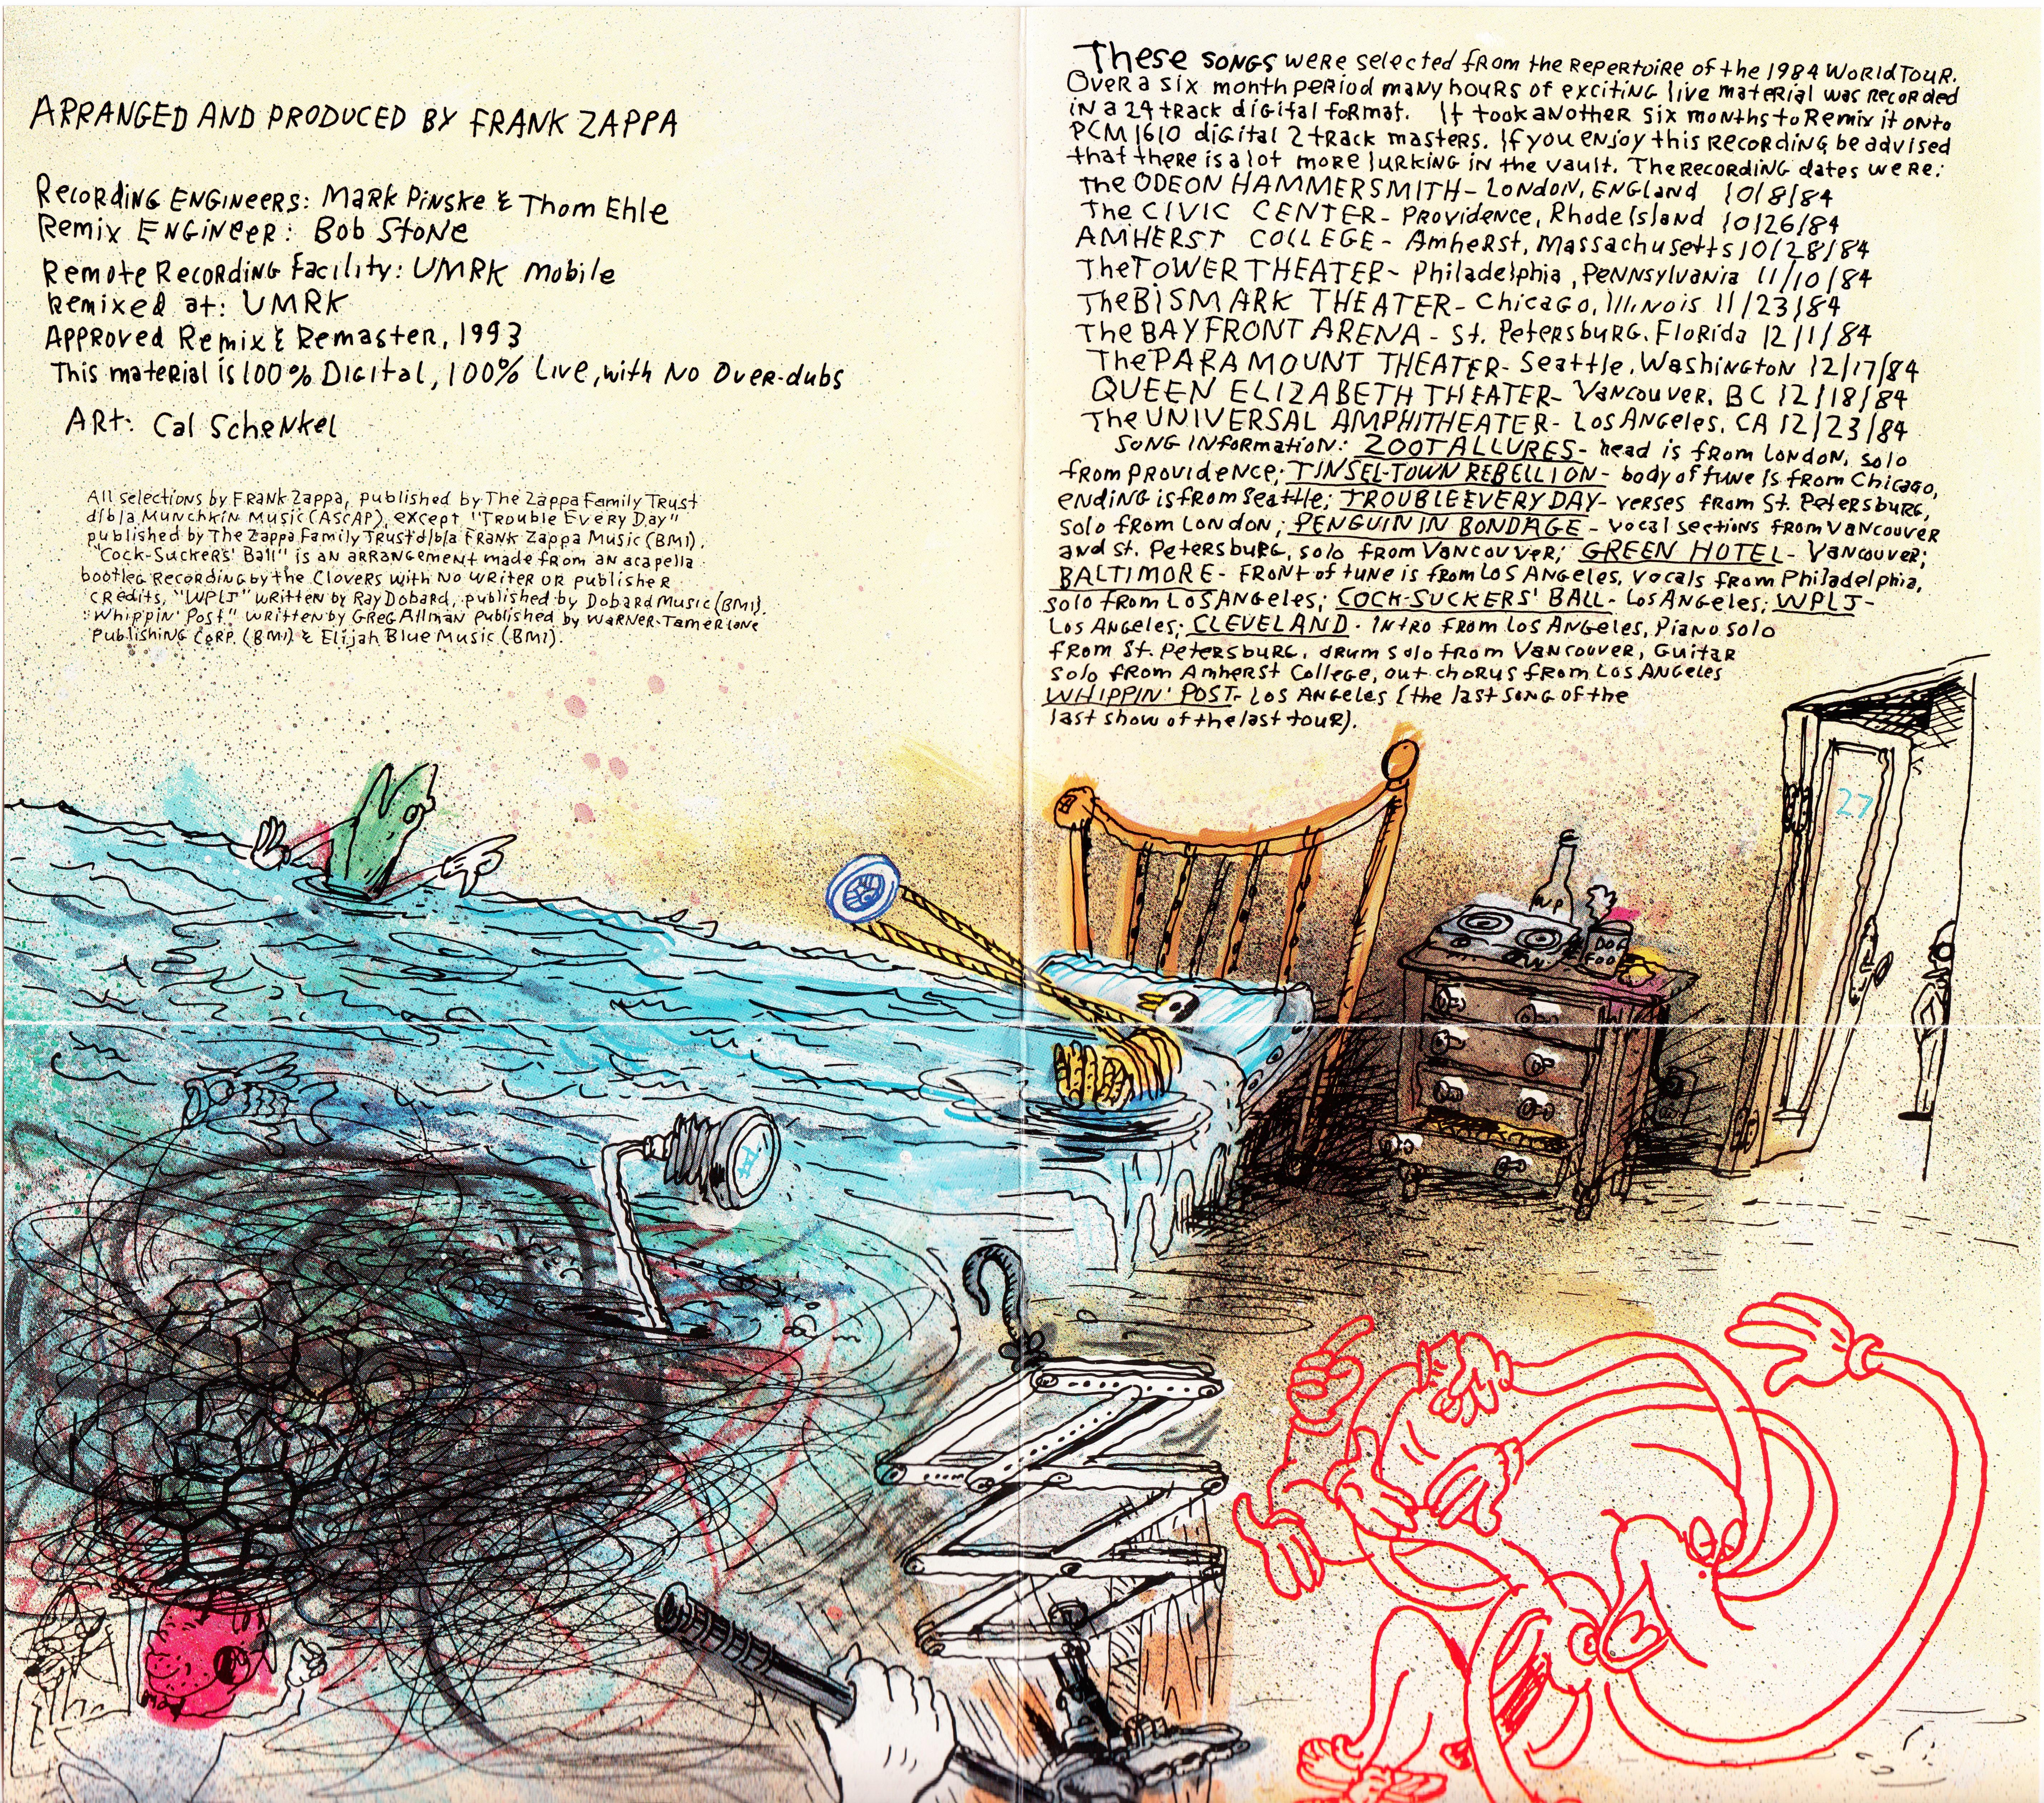 ARRANGED AND PRODUCED BY FRANK ZAPPA
Recording Engineers: Mark Pinske & Thom Ehle
Remix Engineer: Bob Stone
Remote Recording Facility: UMRK Mobile
Remixed at: UMRK
Approved Remix & Remaster, 1993
This material is 100% Digital, 100% Live, with No Over-dubs
Art: Cal Schenkel
All selections by Frank Zappa, published by The Zappa Family Trust
d/b/a Munchkin Music (ASCAP), except "Trouble Every Day"
published by The Zappa Family Trust d/b/a Frank Zappa Music (BMI).
"Cock-Suckers' Ball" is an arrangement made from an acapella
bootleg recording by the Clovers with no writer or publisher
credits, "WPLJ" written by Ray Dobard, published by Dobard Music (BMI).
"Whippin' Post" written by Greg Allman published by Warner-Tamerlane
Publishing Corp. (BMI) & Elijah Blue Music (BMI).
These songs were selected from the repertoire of the 1984 World Tour.
Over a six month period many hours of exciting live material was recorded
in a 24 track digital format. It took another six months to remix it onto
PCM 1610 digital 2 track masters. If you enjoy this recording be advised
that there is a lot more lurking in the vault. The recording dates were:
The ODEON HAMMERSMITH - London, England 10/8/84
The CIVIC CENTER - Providence, Rhode Island 10/26/84
AMHERST COLLEGE - Amherst, Massachusetts 10/28/84
The TOWER THEATER - Philadelphia, Pennsylvania 11/10/84
The BISMARK THEATER - Chicago, Illinois 11/23/84
The BAYFRONT ARENA - St. Petersburg, Florida 12/1/84
The PARAMOUNT THEATER - Seattle, Washington 12/17/84
QUEEN ELIZABETH THEATER - Vancouver, BC 12/18/84
The UNIVERSAL AMPHITHEATER - Los Angeles, CA 12/23/84
Song Information: ZOOT ALLURES - head is from London, solo
from Providence; TINSEL-TOWN REBELLION - body of tune is from Chicago,
ending is from Seattle; TROUBLE EVERY DAY - verses from St. Petersburg,
solo from London; PENGUIN IN BONDAGE - vocal sections from Vancouver
and St. Petersburg, solo from Vancouver; GREEN HOTEL - Vancouver;
BALTIMORE - front of tune is from Los Angeles, vocals from Philadelphia,
solo from Los Angeles; COCK-SUCKERS' BALL - Los Angeles; WPLJ -
Los Angeles; CLEVELAND - intro from Los Angeles, piano solo
from St. Petersburg, drum solo from Vancouver, guitar
solo from Amherst College, out chorus from Los Angeles
WHIPPIN' POST - Los Angeles (the last song of the
last show of the last tour).
27
WP
DOG
FOOD